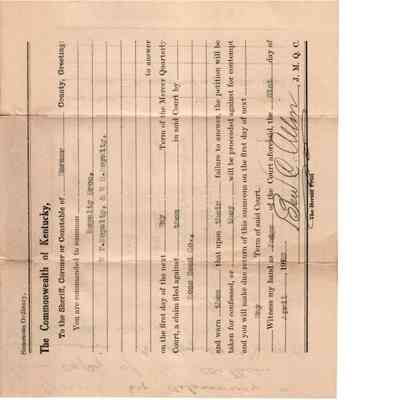 Summons Ordinary.
The Commonwealth of Kentucky,
To the Sheriff, Coroner or Constable of Mercer County, Greeting:
You are commanded to summon
Royalty Bros,
T. Royalty, & Royalty,
to answer
on the first day of the next May Term of the Mercer Quarterly
Court, a claim filed against them in said Court by
Seed Co.,
and warn them that upon their failure to answer, the petition will be
taken for confessed, or they will be proceeded against for contempt
and you will make due return of this summons on the first day of next
May Term of said Court.
Witness my hand as Judge of the Court aforesaid, the 21st day of
April 19
Ben C. Allin J. M. Q. C.
The Herald Print